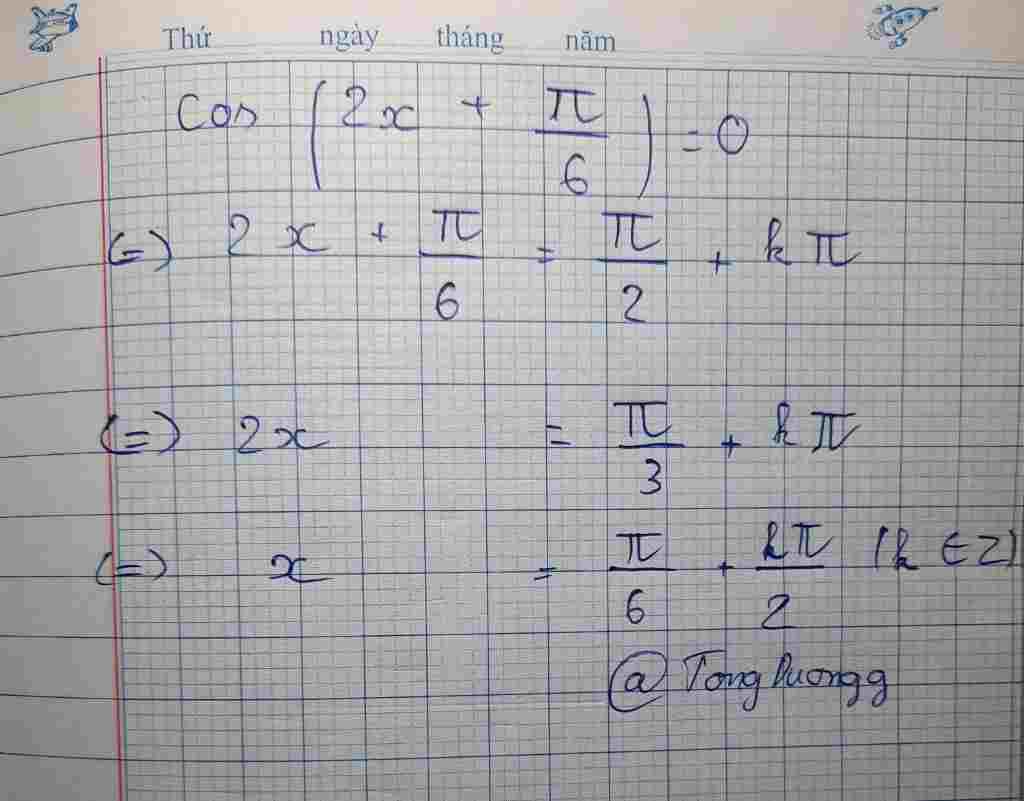 Thứ ngày tháng năm
Cos (2x + π/6) = 0
(=) 2x + π/6 = π/2 + kπ
(=) 2x = π/3 + kπ
(=) x = π/6 + kπ/2 (k ∈ Z)
@Tongduongg